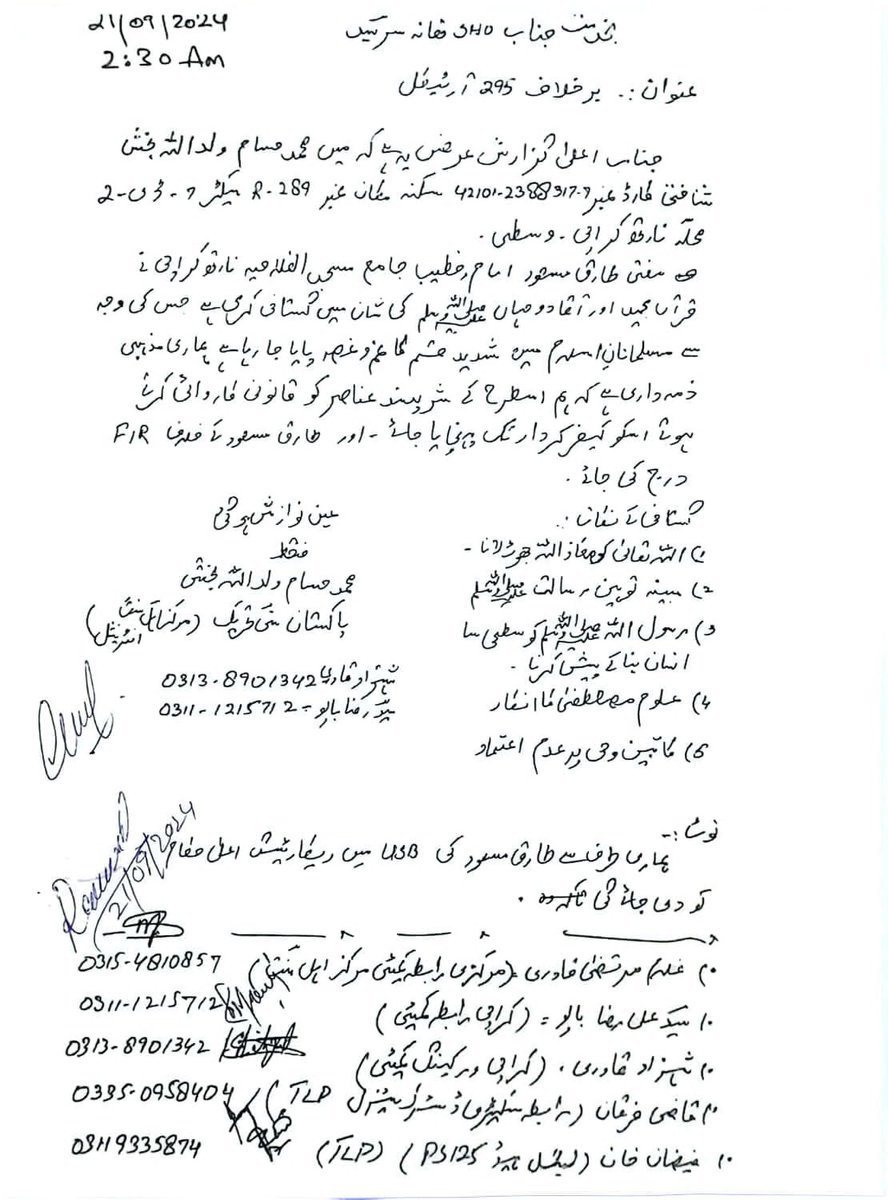 21/09/2024
2:30 Am
بخدمت جناب SHO تھانہ سرسید
عنوان :. برخلاف 295 آرٹیکل
جناب اعلیٰ گزارش عرض یہ ہے کہ میں محمد حسام ولد اللہ بخش
شناختی کارڈ نمبر 42101-2388317-7 سکنہ مکان نمبر R-289 سیکٹر 7-ڈی-2
محلہ نارتھ کراچی - وسطی .
مفتی طارق مسعود امام و خطیب جامع مسجد الفلاحیہ نارتھ کراچی نے
قرآن مجید اور آقا دو جہاں صلی اللہ علیہ وسلم کی شان میں گستاخی کری ہے جس کی وجہ
سے مسلمانانِ اسلام میں شدید قسم کا غم و غصہ پایا جا رہا ہے ہماری مذہبی
ذمہ داری ہے کہ ہم اسطرح کے شرپسند عناصر کو قانونی کاروائی کرتے
ہوئے اسکو کیفر کردار تک پہنچایا جائے - اور طارق مسعود کے خلاف FIR
درج کی جائے .
گستاخی کے نقات :.
1) اللہ تعالیٰ کو معاذ اللہ جھوڑلانا -
2) مبینہ توہین رسالت صلی اللہ علیہ وسلم
3) رسول اللہ صلی اللہ علیہ وسلم کو سطحی سا
انسان بنا کے پیش کرنا .
4) علوم مصطفیٰ کا انکار
5) کاتبین وحی پر عدم اعتماد
عین نوازش ہوگی
فقط
محمد حسام ولد اللہ بخش
پاکستان سنی تحریک (مرکز اہلسنت انٹرنیشنل)
شہزاد قادری 0313-8901342
سید رضا باپو = 0311-1215712
نوٹ :-
ہماری طرف سے طارق مسعود کی USB میں ریکارڈنیش اعلیٰ حکام
کو دی جائے گی .
Received
21/09/2024
غلام مرتضیٰ قادری (مرکزی رابطہ کمیٹی مرکز اہل سنت) 0315-4810857
سید علی رضا باپو = (کراچی رابطہ کمیٹی) 0311-1215712
شہزاد قادری . (کراچی ورکینگ کمیٹی) 0313-8901342
قاضی فرقان (رابطہ سیکٹری ڈسٹرک سینٹرل TLP) 0335-0958404
فیضان خان (PS125) (TLP) 03119335874